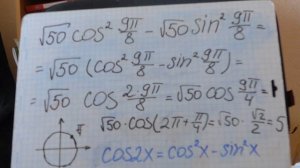 √50 cos² 9π/8 − √50 sin² 9π/8 =
= √50 (cos² 9π/8 − sin² 9π/8) =
= √50 cos 2·9π/8 = √50 cos 9π/4 =
√50·cos(2π+π/4)=√50·√2/2=5
π/4
cos2x = cos²x − sin²x